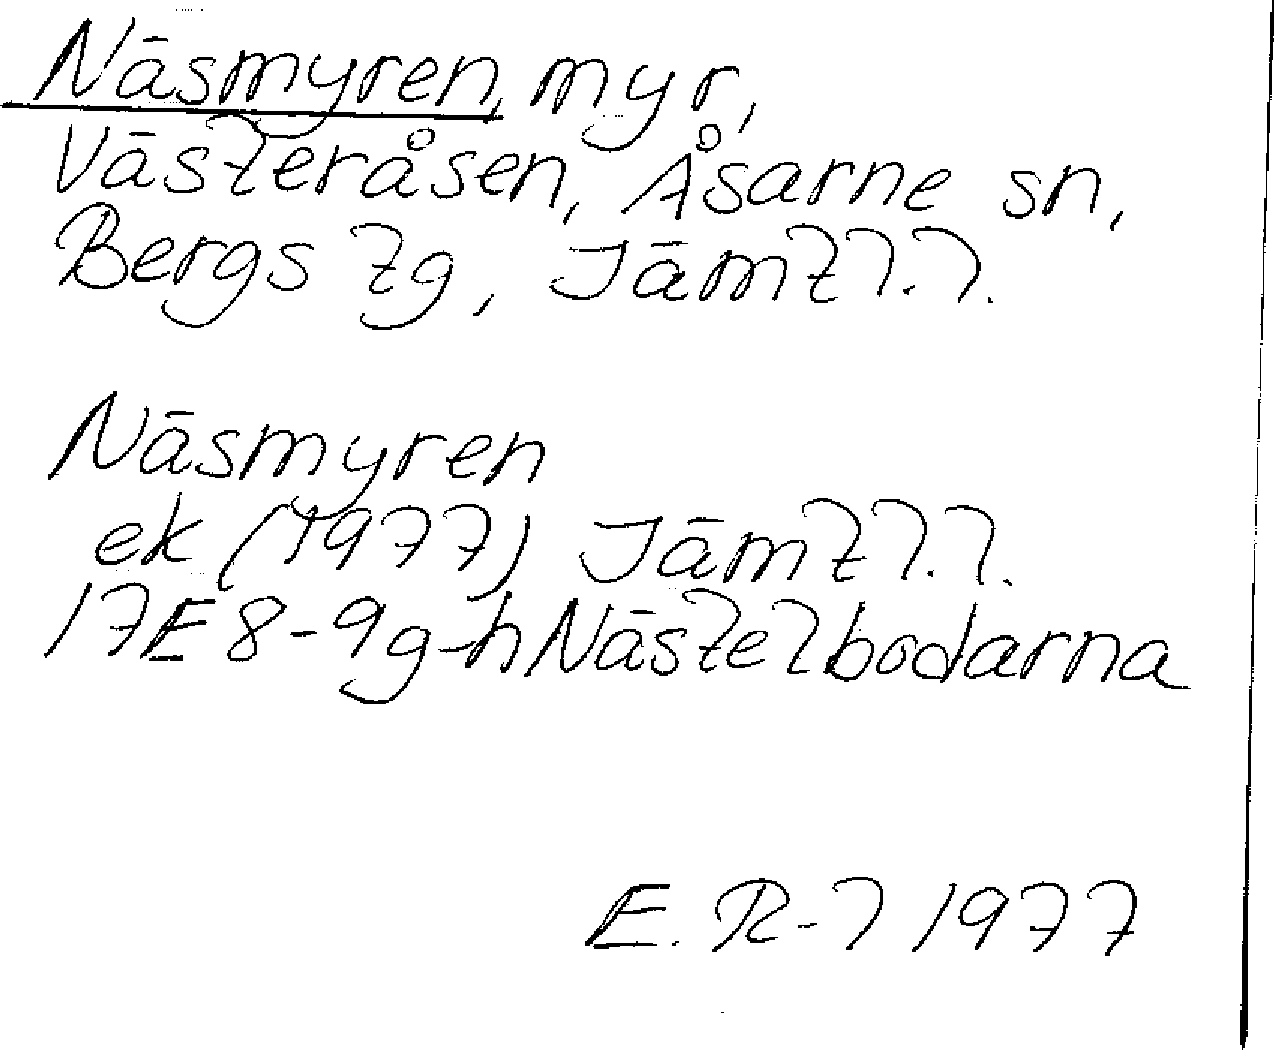 Näsmyren, myr,
Västeråsen, Åsarne sn,
Bergs tg, Jämtl.l.
Näsmyren
ek (1977) Jämtl.l.
17E 8-9g-h Nästelbodarna
E. R-l 1977